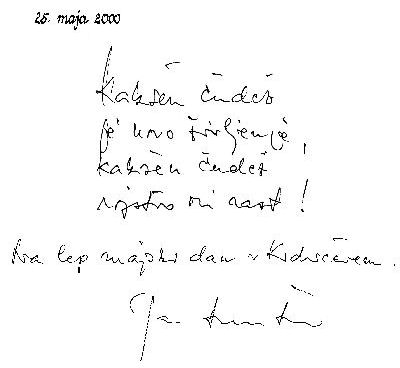 25. maja 2000
Kakšen čudež
je novo življenje,
kakšen čudež
rojstvo in rast!
Na lep majski dan v Kidričevem.